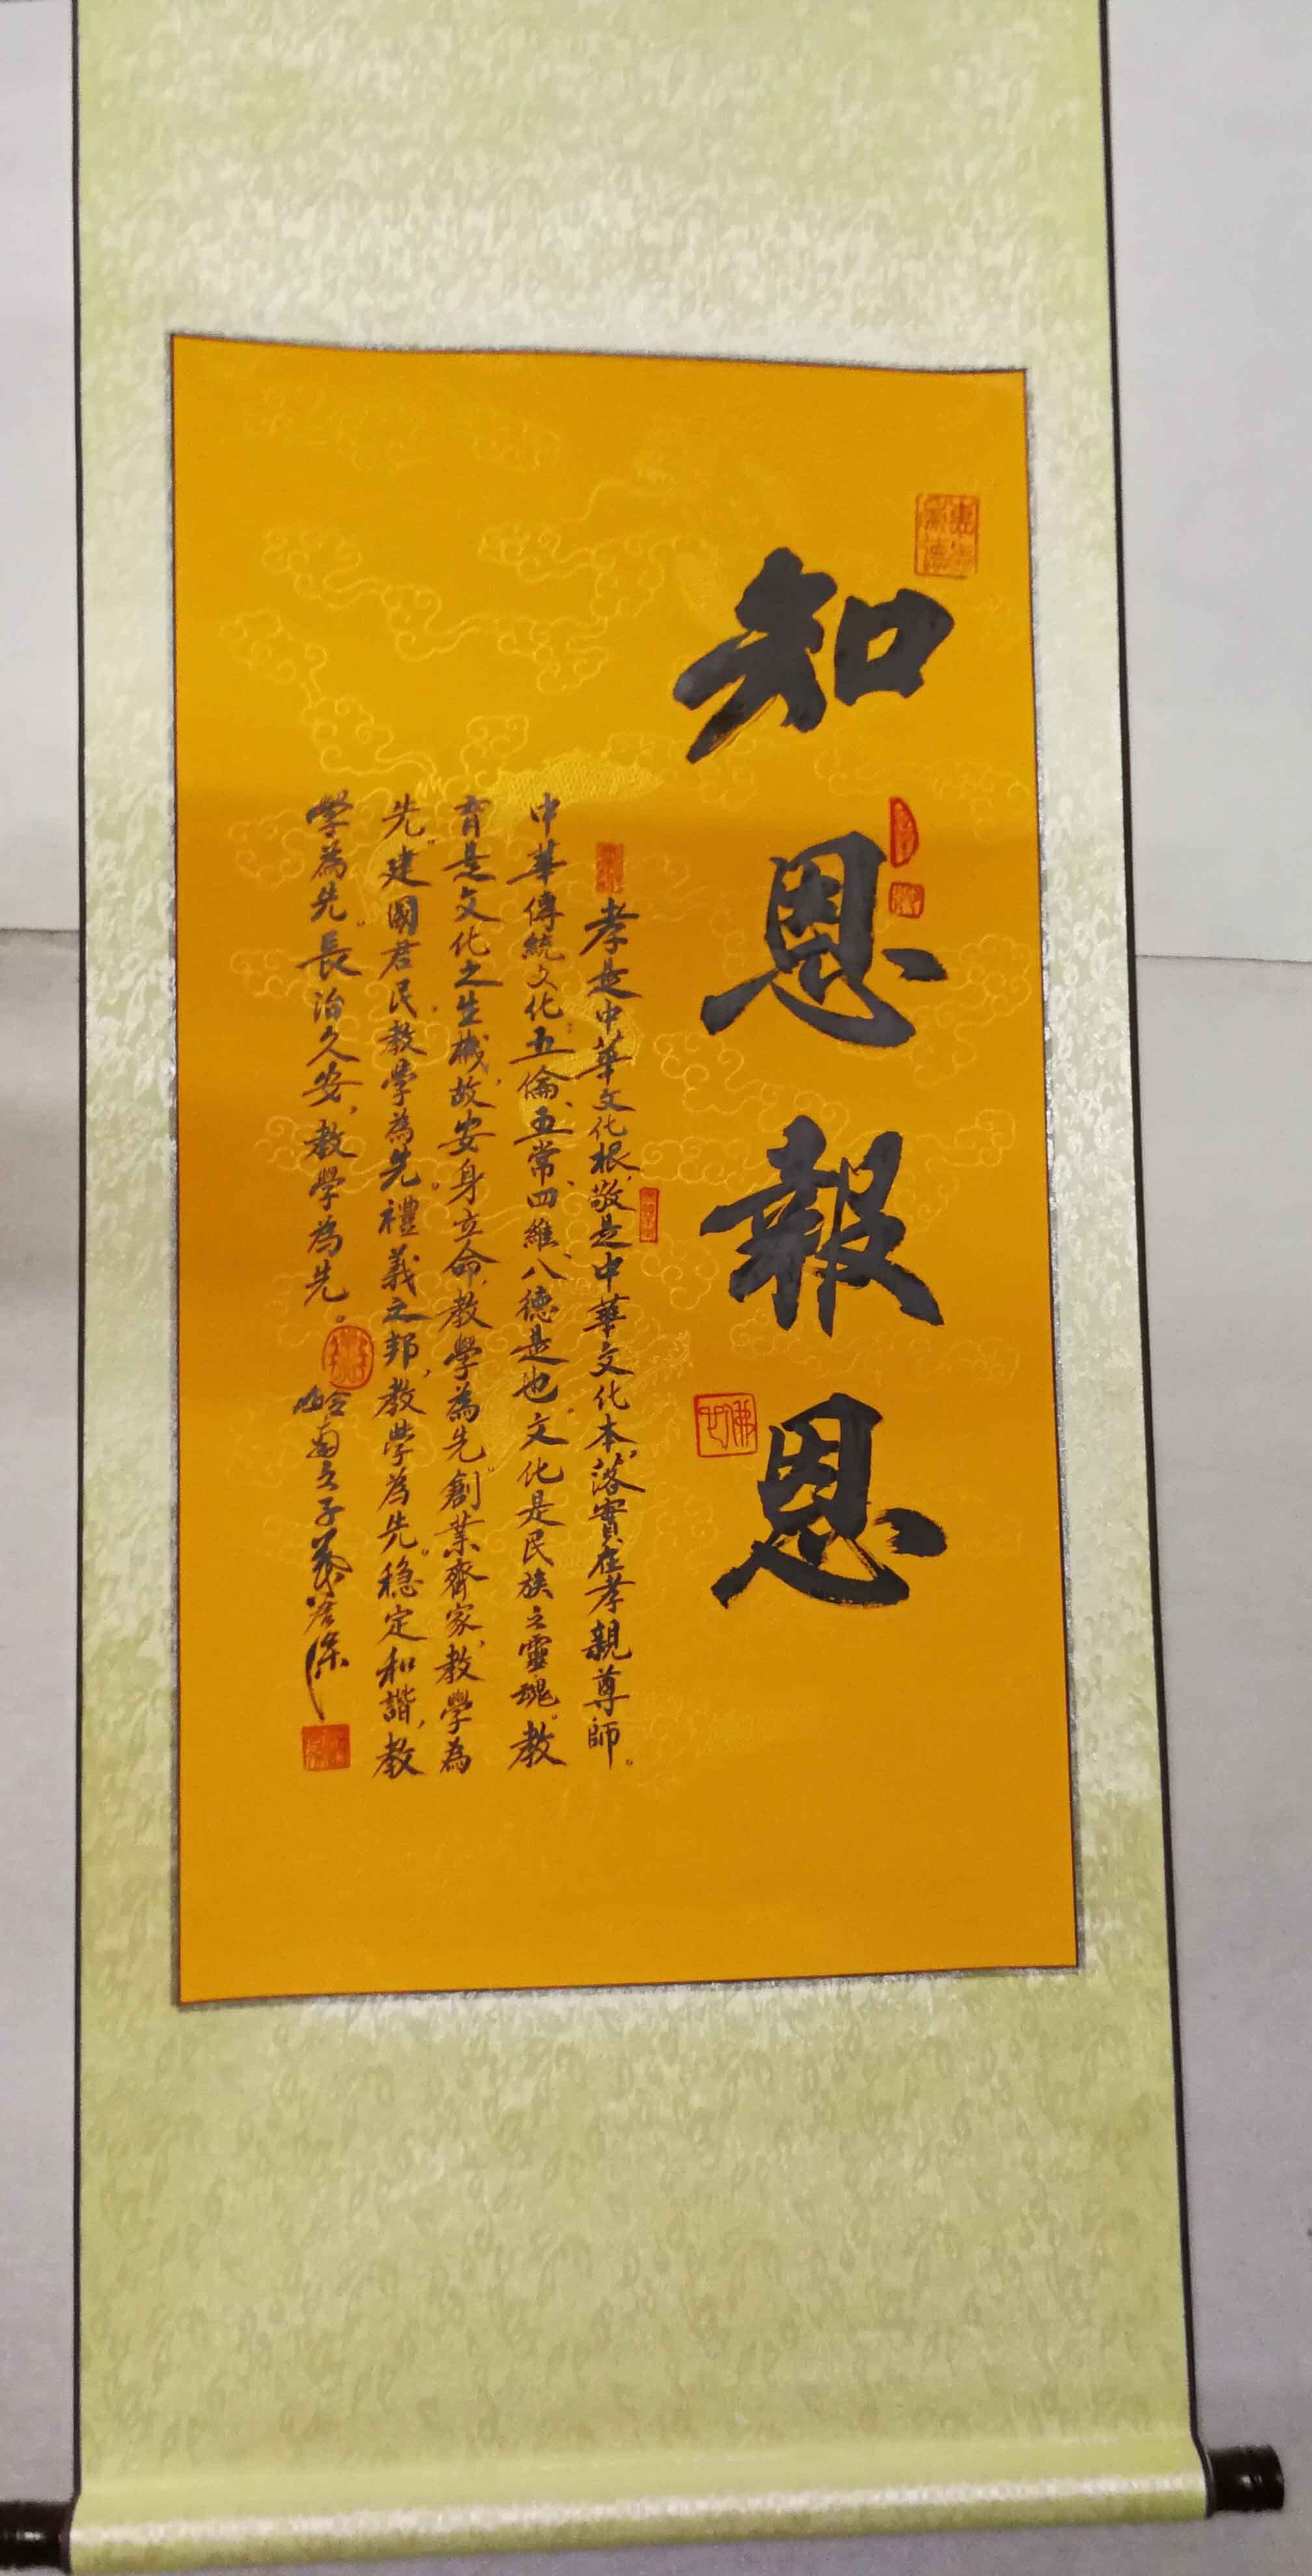 知恩報恩
孝是中華文化根，敬是中華文化本，落實在孝親尊師。
中華傳統文化：五倫、五常、四維、八德是也。文化是民族之靈魂。教
育是文化之生機，故安身立命，教學為先。創業齊家，教學為
先。建國君民，教學為先。禮義之邦，教學為先。稳定和諧，教
學為先。長治久安，教學為先。
佛